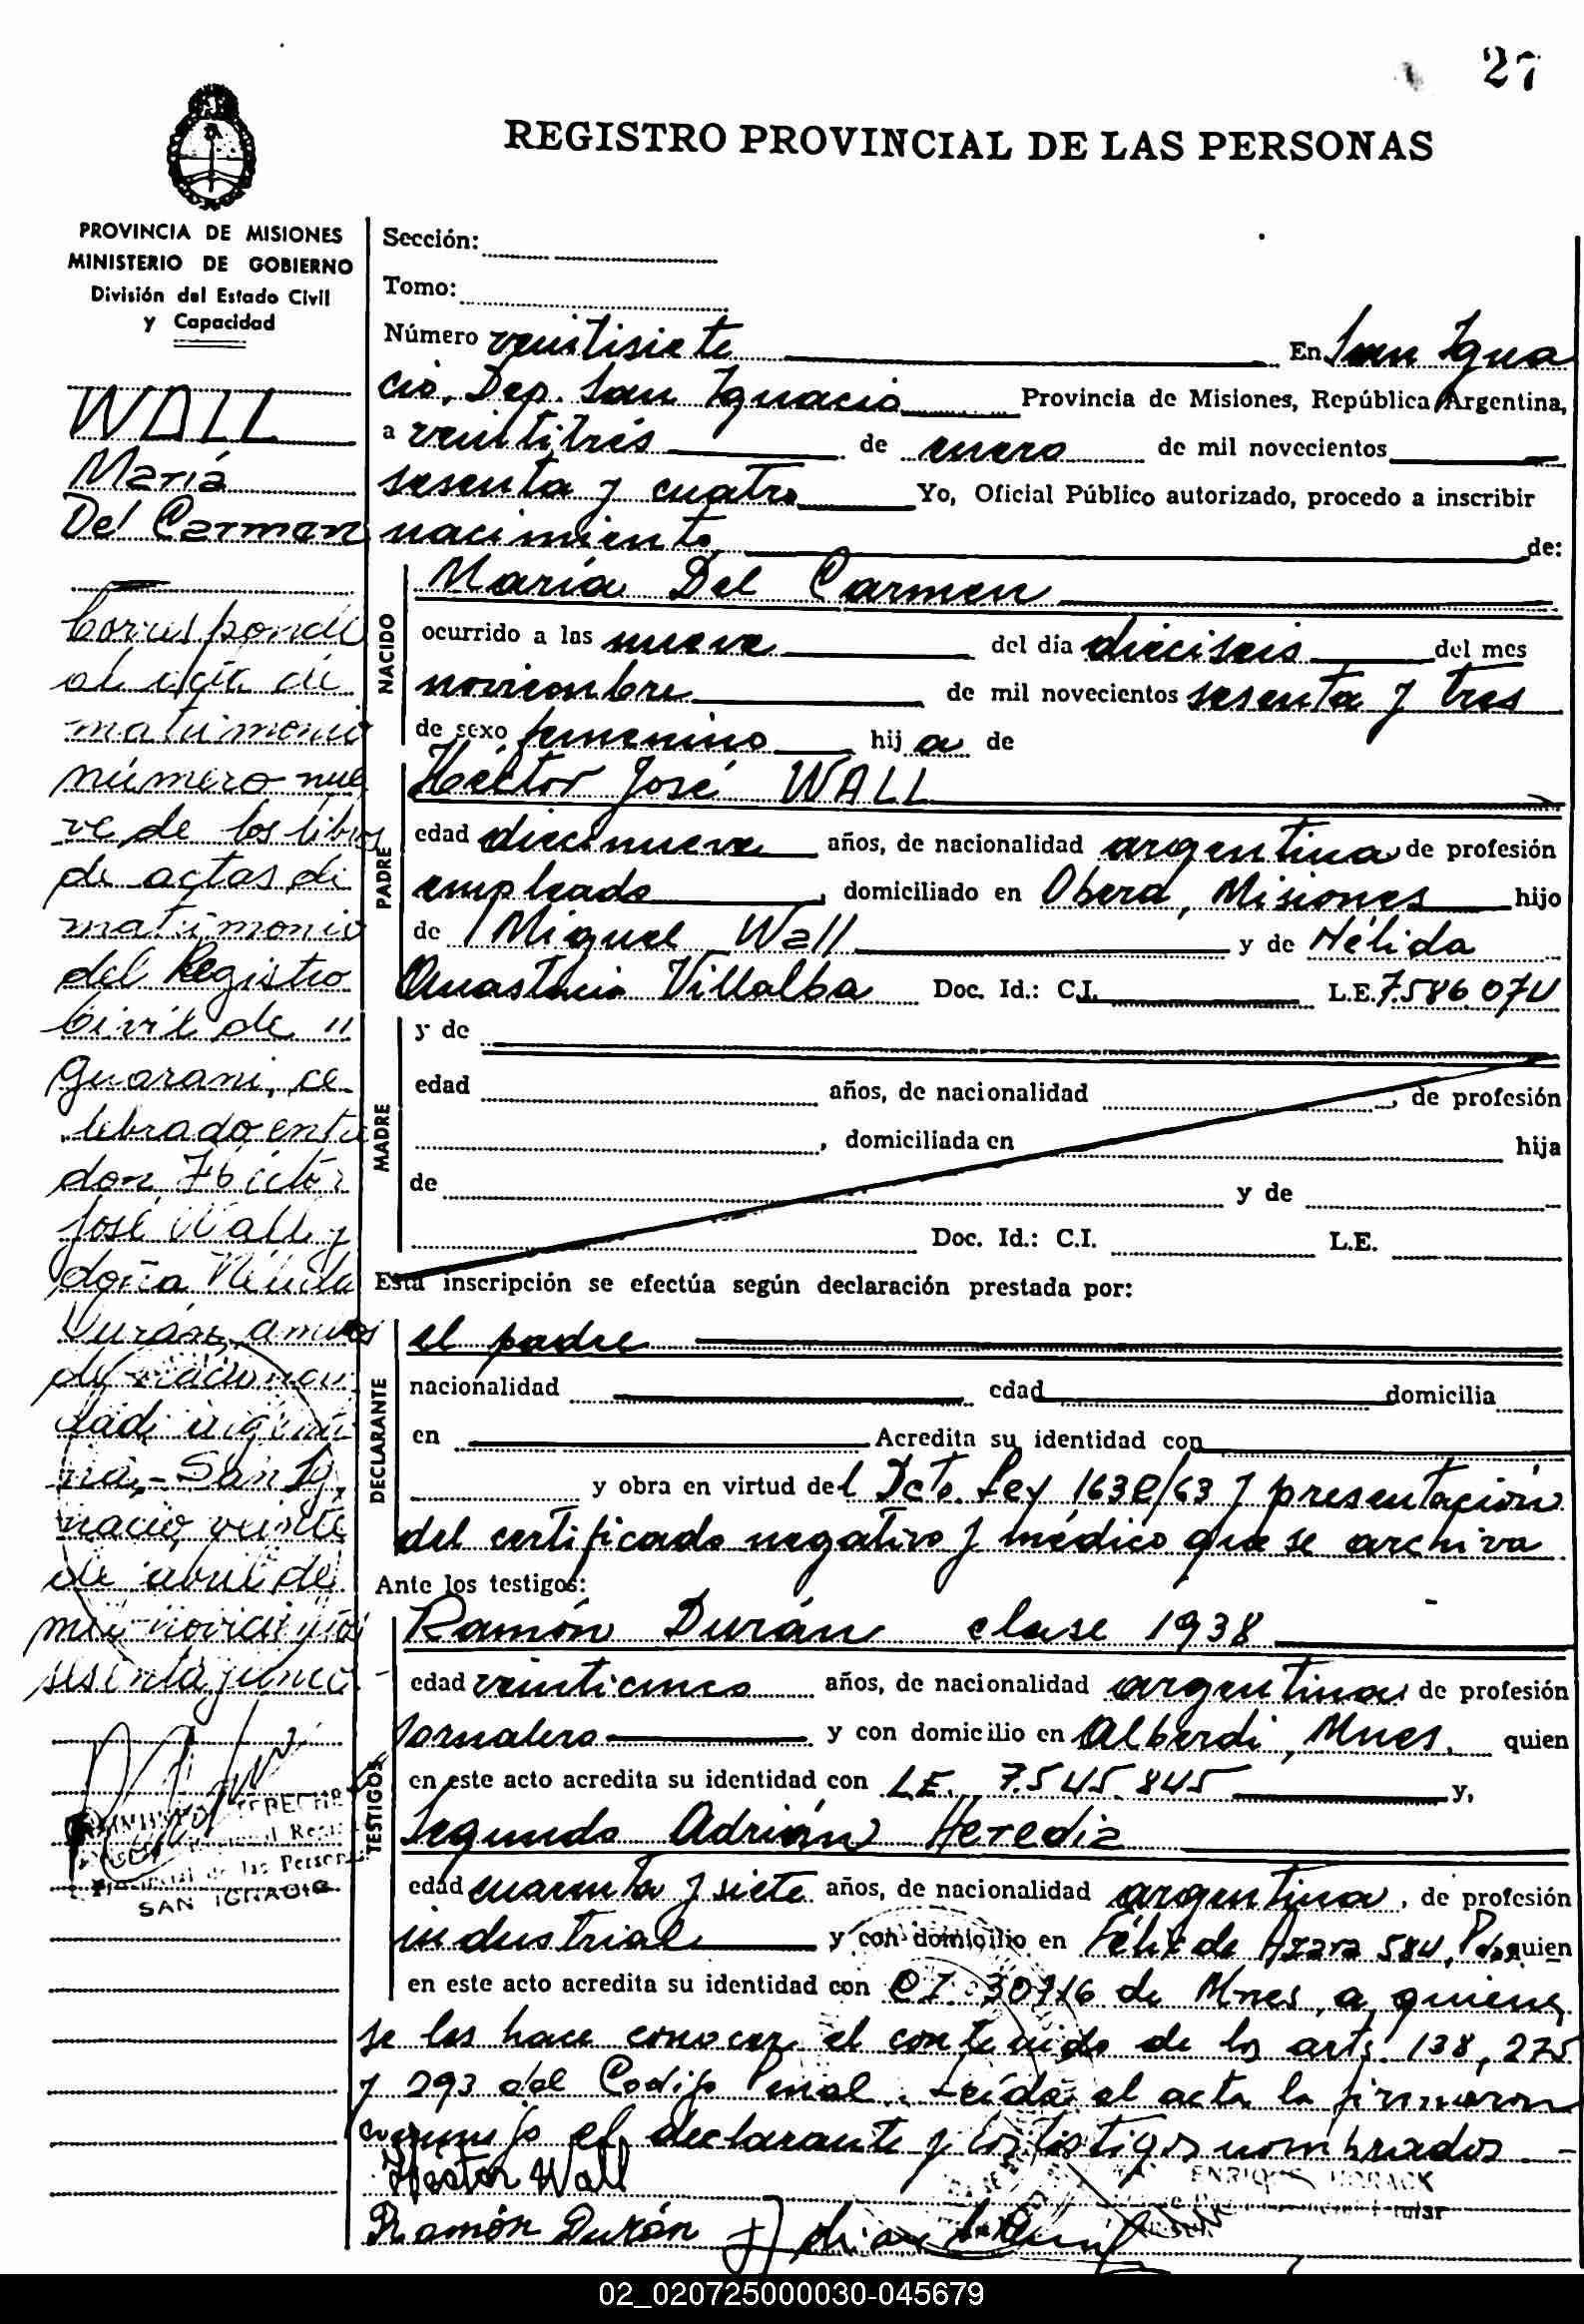 27
REGISTRO PROVINCIAL DE LAS PERSONAS
PROVINCIA DE MISIONES
MINISTERIO DE GOBIERNO
División del Estado Civil
y Capacidad
WALL
María
Del Carmen
Corresponde
al acta de
matrimonio
número nue
ve de los libros
de actas de
matrimonio
del Registro
Civil de "
Guaraní, ce
lebrado entre
don Héctor
José Wall y
doña Nélida
Durán, ambos
de nacionali
dad argenti
na,- San Ig
nacio, veinte
de abril de
mil novecientos
sesenta y cinco.-
SAN IGNACIO
Sección:
Tomo:
Número veintisiete En San Igna
cio, Dep. San Ignacio Provincia de Misiones, República Argentina,
a veintitrés de enero de mil novecientos
sesenta y cuatro Yo, Oficial Público autorizado, procedo a inscribir
nacimiento de:
NACIDO
María Del Carmen
ocurrido a las nueve del día dieciseis del mes
noviembre de mil novecientos sesenta y tres
de sexo femenino hija de
PADRE
Héctor José WALL
edad diecinueve años, de nacionalidad argentina de profesión
empleado, domiciliado en Oberá, Misiones hijo
de Miguel Wall y de Nélida
Anastacia Villalba Doc. Id.: C.I. L.E. 7.586.074
MADRE
y de
edad años, de nacionalidad , de profesión
, domiciliada en hija
de y de
Doc. Id.: C.I. L.E.
Esta inscripción se efectúa según declaración prestada por:
DECLARANTE
el padre
nacionalidad edad domicilia
en Acredita su identidad con
y obra en virtud del Dcto. Ley 1630/63 y presentación
del certificado negativo y médico que se archiva
Ante los testigos:
TESTIGOS
Ramón Durán clase 1938
edad veinticinco años, de nacionalidad argentina de profesión
jornalero y con domicilio en Alberdi, Mnes. quien
en este acto acredita su identidad con L.E. 7.545.845 y,
Segundo Adrián Heredia
edad cuarenta y siete años, de nacionalidad argentina, de profesión
industrial y con domicilio en Félix de Azara 584, Pdas quien
en este acto acredita su identidad con C.I. 30716 de Mnes, a quienes
se les hace conocer el contenido de los arts. 138, 275
y 293 del Codigo Penal. Leída el acta la firmaron
conmigo el declarante y los testigos nombrados.-
Héctor Wall
Ramón Durán
02_020725000030-045679